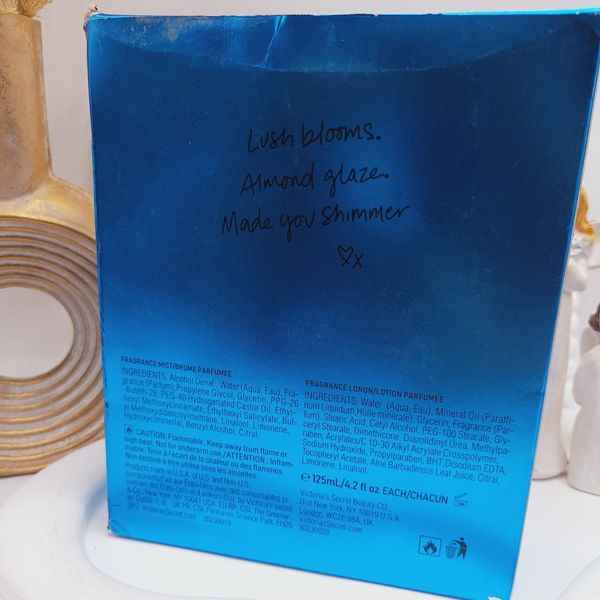 Lush blooms.
Almond glaze.
Made you shimmer
♡x
FRAGRANCE MIST/BRUME PARFUMEE
INGREDIENTS: Alcohol Denat., Water (Aqua, Eau), Fra-
grance (Parfum), Propylene Glycol, Glycerin, PPG-26
-Buteth-26, PEG-40 Hydrogenated Castor Oil, Ethyl-
hexyl Methoxycinnamate, Ethylhexyl Salicylate, But-
yl Methoxydibenzoylmethane, Linalool, Limonene,
Hydroxycitronellal, Benzyl Alcohol, Citral.
CAUTION: Flammable, Keep away from flame or
high heat. Not for underarm use./ATTENTION: Inflam-
mable. Tenir à l'écart de la chaleur ou des flammes.
Non destiné à être utilisé sous les aisselles.
Products made in U.S.A. of U.S. and Non-U.S.
components/Fait aux États-Unis avec des composantes pr-
ovenant des États-Unis et d'ailleurs Dist. by Victoria's secret
& Co., New York, NY 10041 USA,
VictoriasSecret.com 30230019
FRAGRANCE LONON/LOTION PARFUMEE
INGREDIENTS: Water (Aqua, Eau), Mineral Oil (Paraffi-
num Liquidum,Huile minerale), Glycerin, Fragrance (Par-
fum), Stearic Acid, Cetyl Alcohol, PEG-100 Stearate, Gly-
ceryl Stearate, Dimethicone, Diazolidinyl Urea, Methylpa-
raben, Acrylates/C 10-30 Alkyl Acrylate Crosspolymer,
Sodium Hydroxide, Propylparaben, BHT, Disodium EDTA,
Tocopheryl Acetate, Aloe Barbadensis Leaf Juice, Citral,
Limonene, Linalool.
℮ 125mL/4.2 fl oz EACH/CHACUN
Victoria's Secret Beauty CO.,
Dist New York, NY 10019 U.S.A.
London, WC2E 9BA, UK
VictoriasSecret.com
30230020